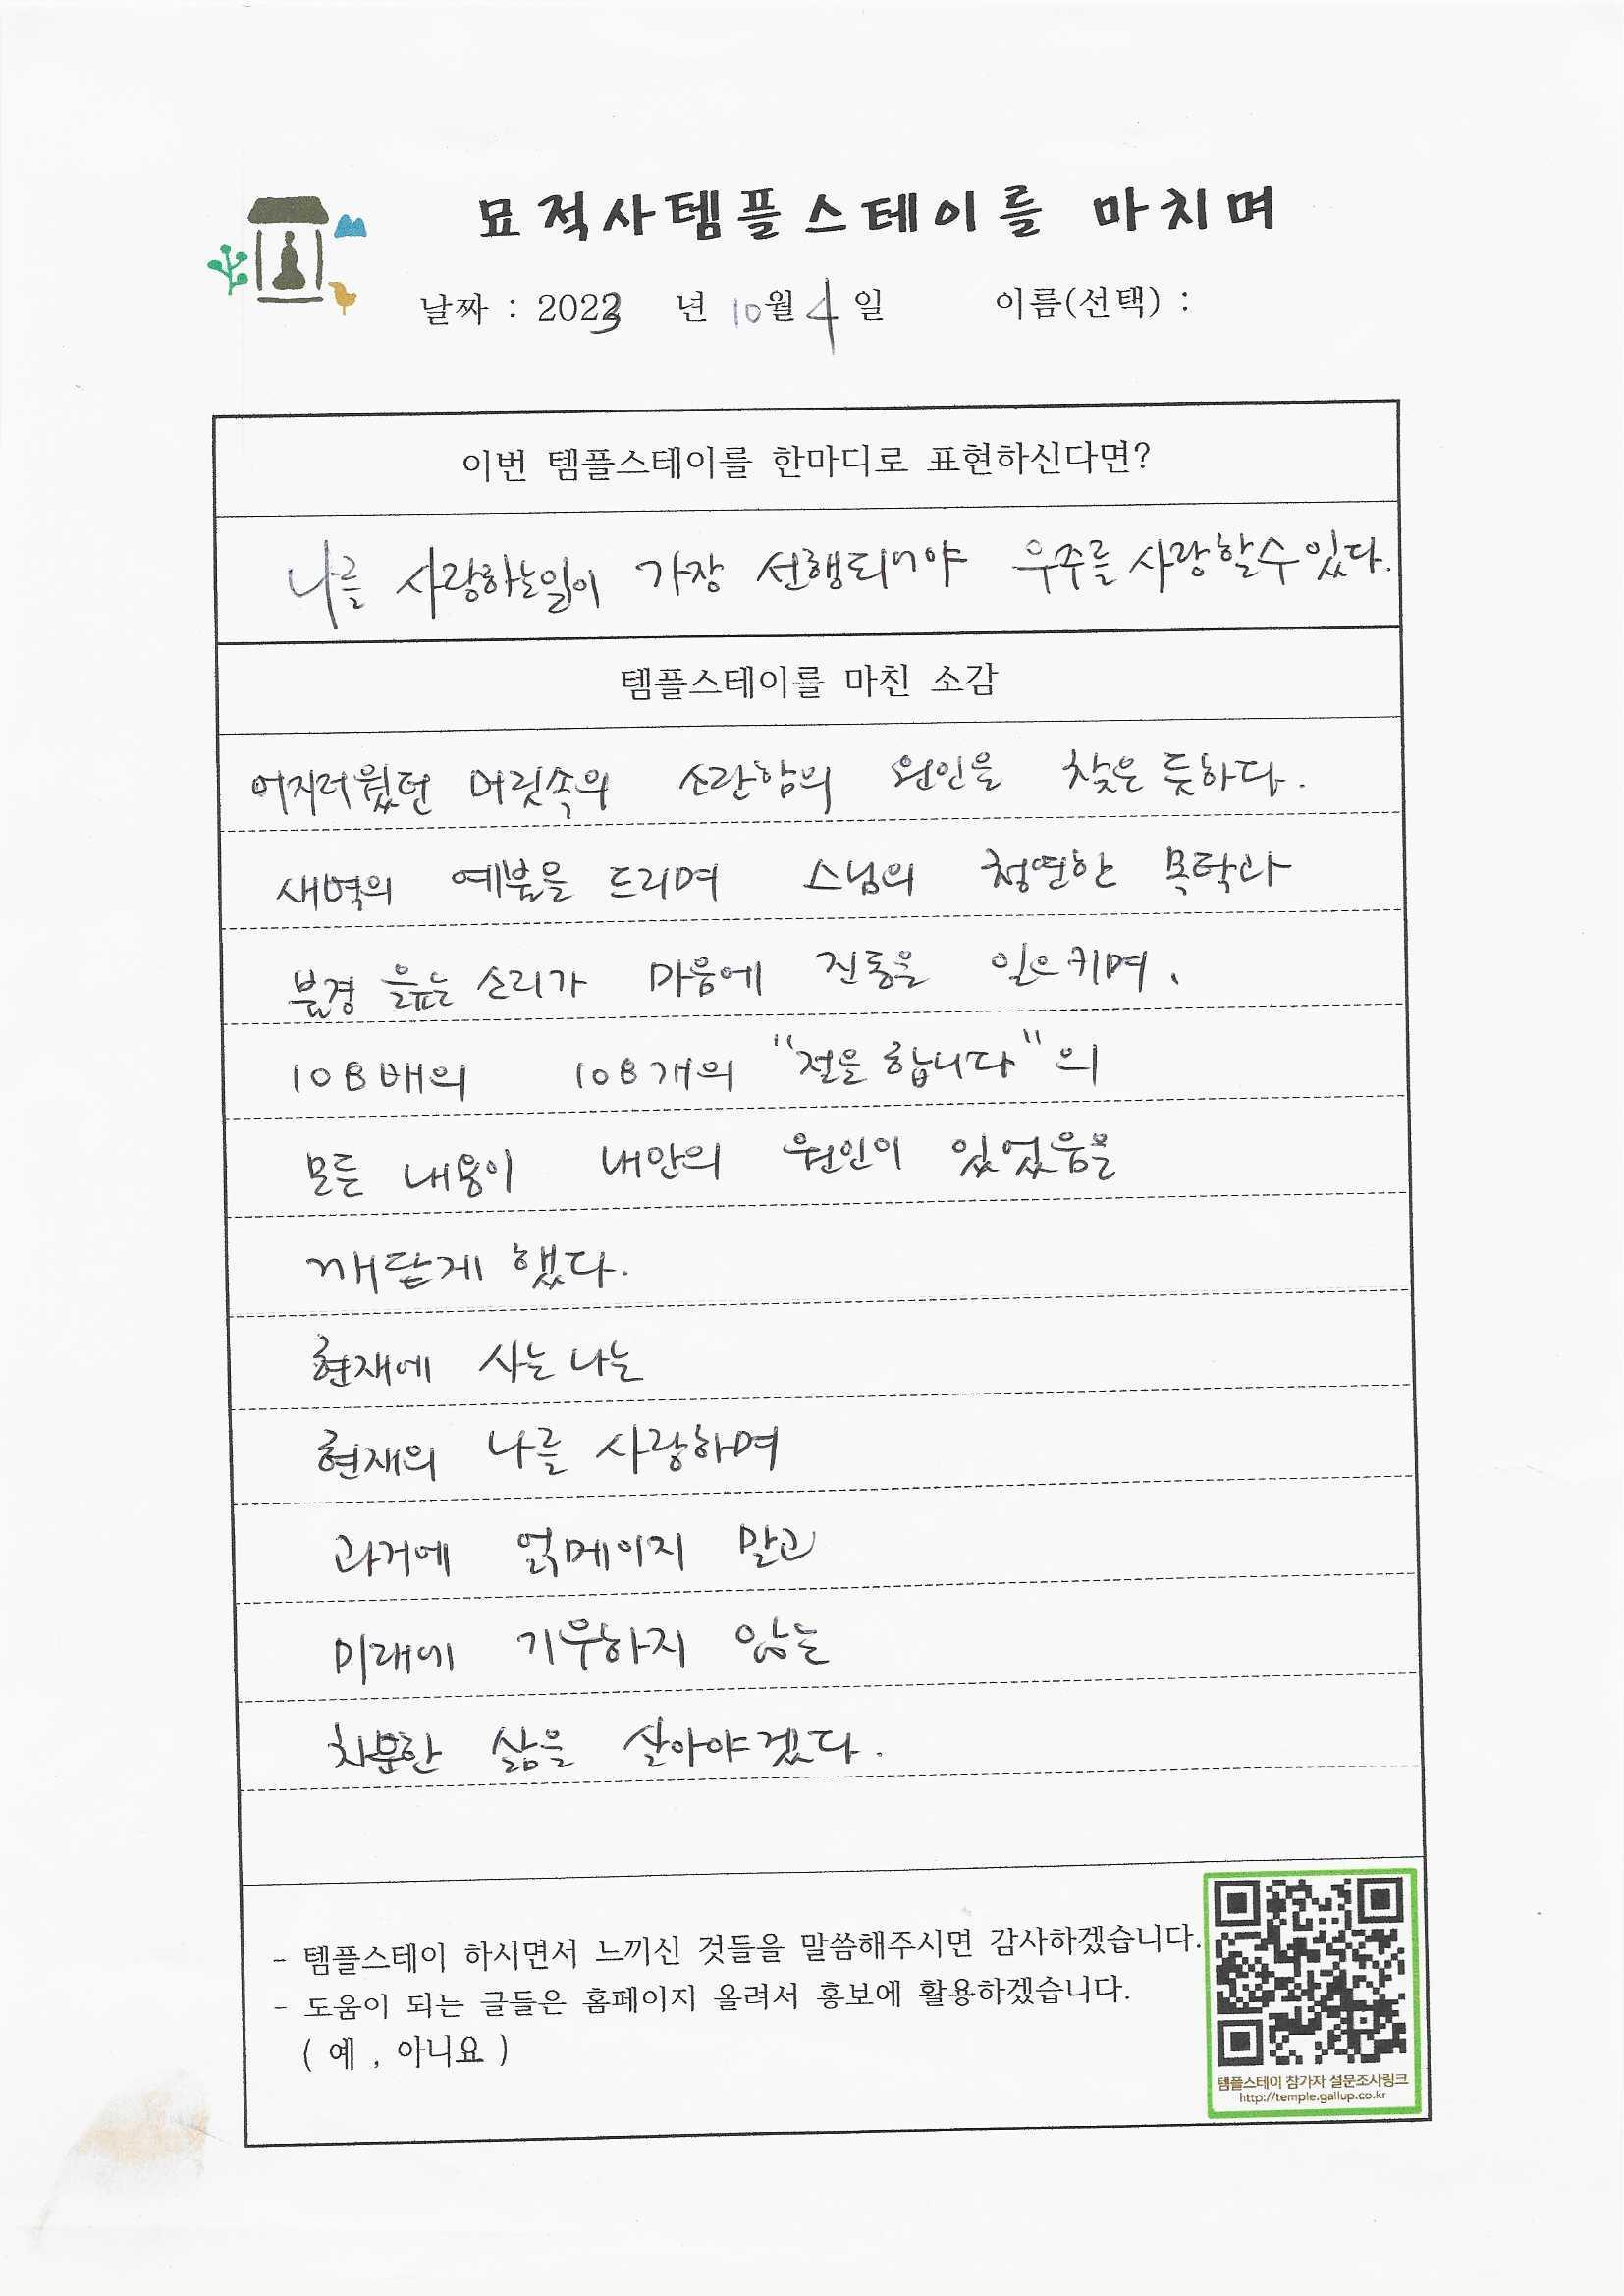 묘적사템플스테이를 마치며
날짜 : 2023 년 10월 4일 이름(선택) :
이번 템플스테이를 한마디로 표현하신다면?
나를 사랑하는일이 가장 선행되어야 우주를 사랑할수있다.
템플스테이를 마친 소감
어지러웠던 머릿속의 소란함의 원인을 찾은 듯하다.
새벽의 예불을 드리며 스님의 청연한 목탁과
불경 읊는 소리가 마음에 진동을 일으키며,
108배의 108개의 "절을 합니다"의
모든 내용이 내안의 원인이 있었음을
깨닫게 했다.
현재에 사는 나는
현재의 나를 사랑하며
과거에 얽메이지 말고
미래에 기우하지 않는
차분한 삶을 살아야겠다.
- 템플스테이 하시면서 느끼신 것들을 말씀해주시면 감사하겠습니다.
- 도움이 되는 글들은 홈페이지 올려서 홍보에 활용하겠습니다.
( 예 , 아니요 )
템플스테이 참가자 설문조사링크
http://temple.gallup.co.kr